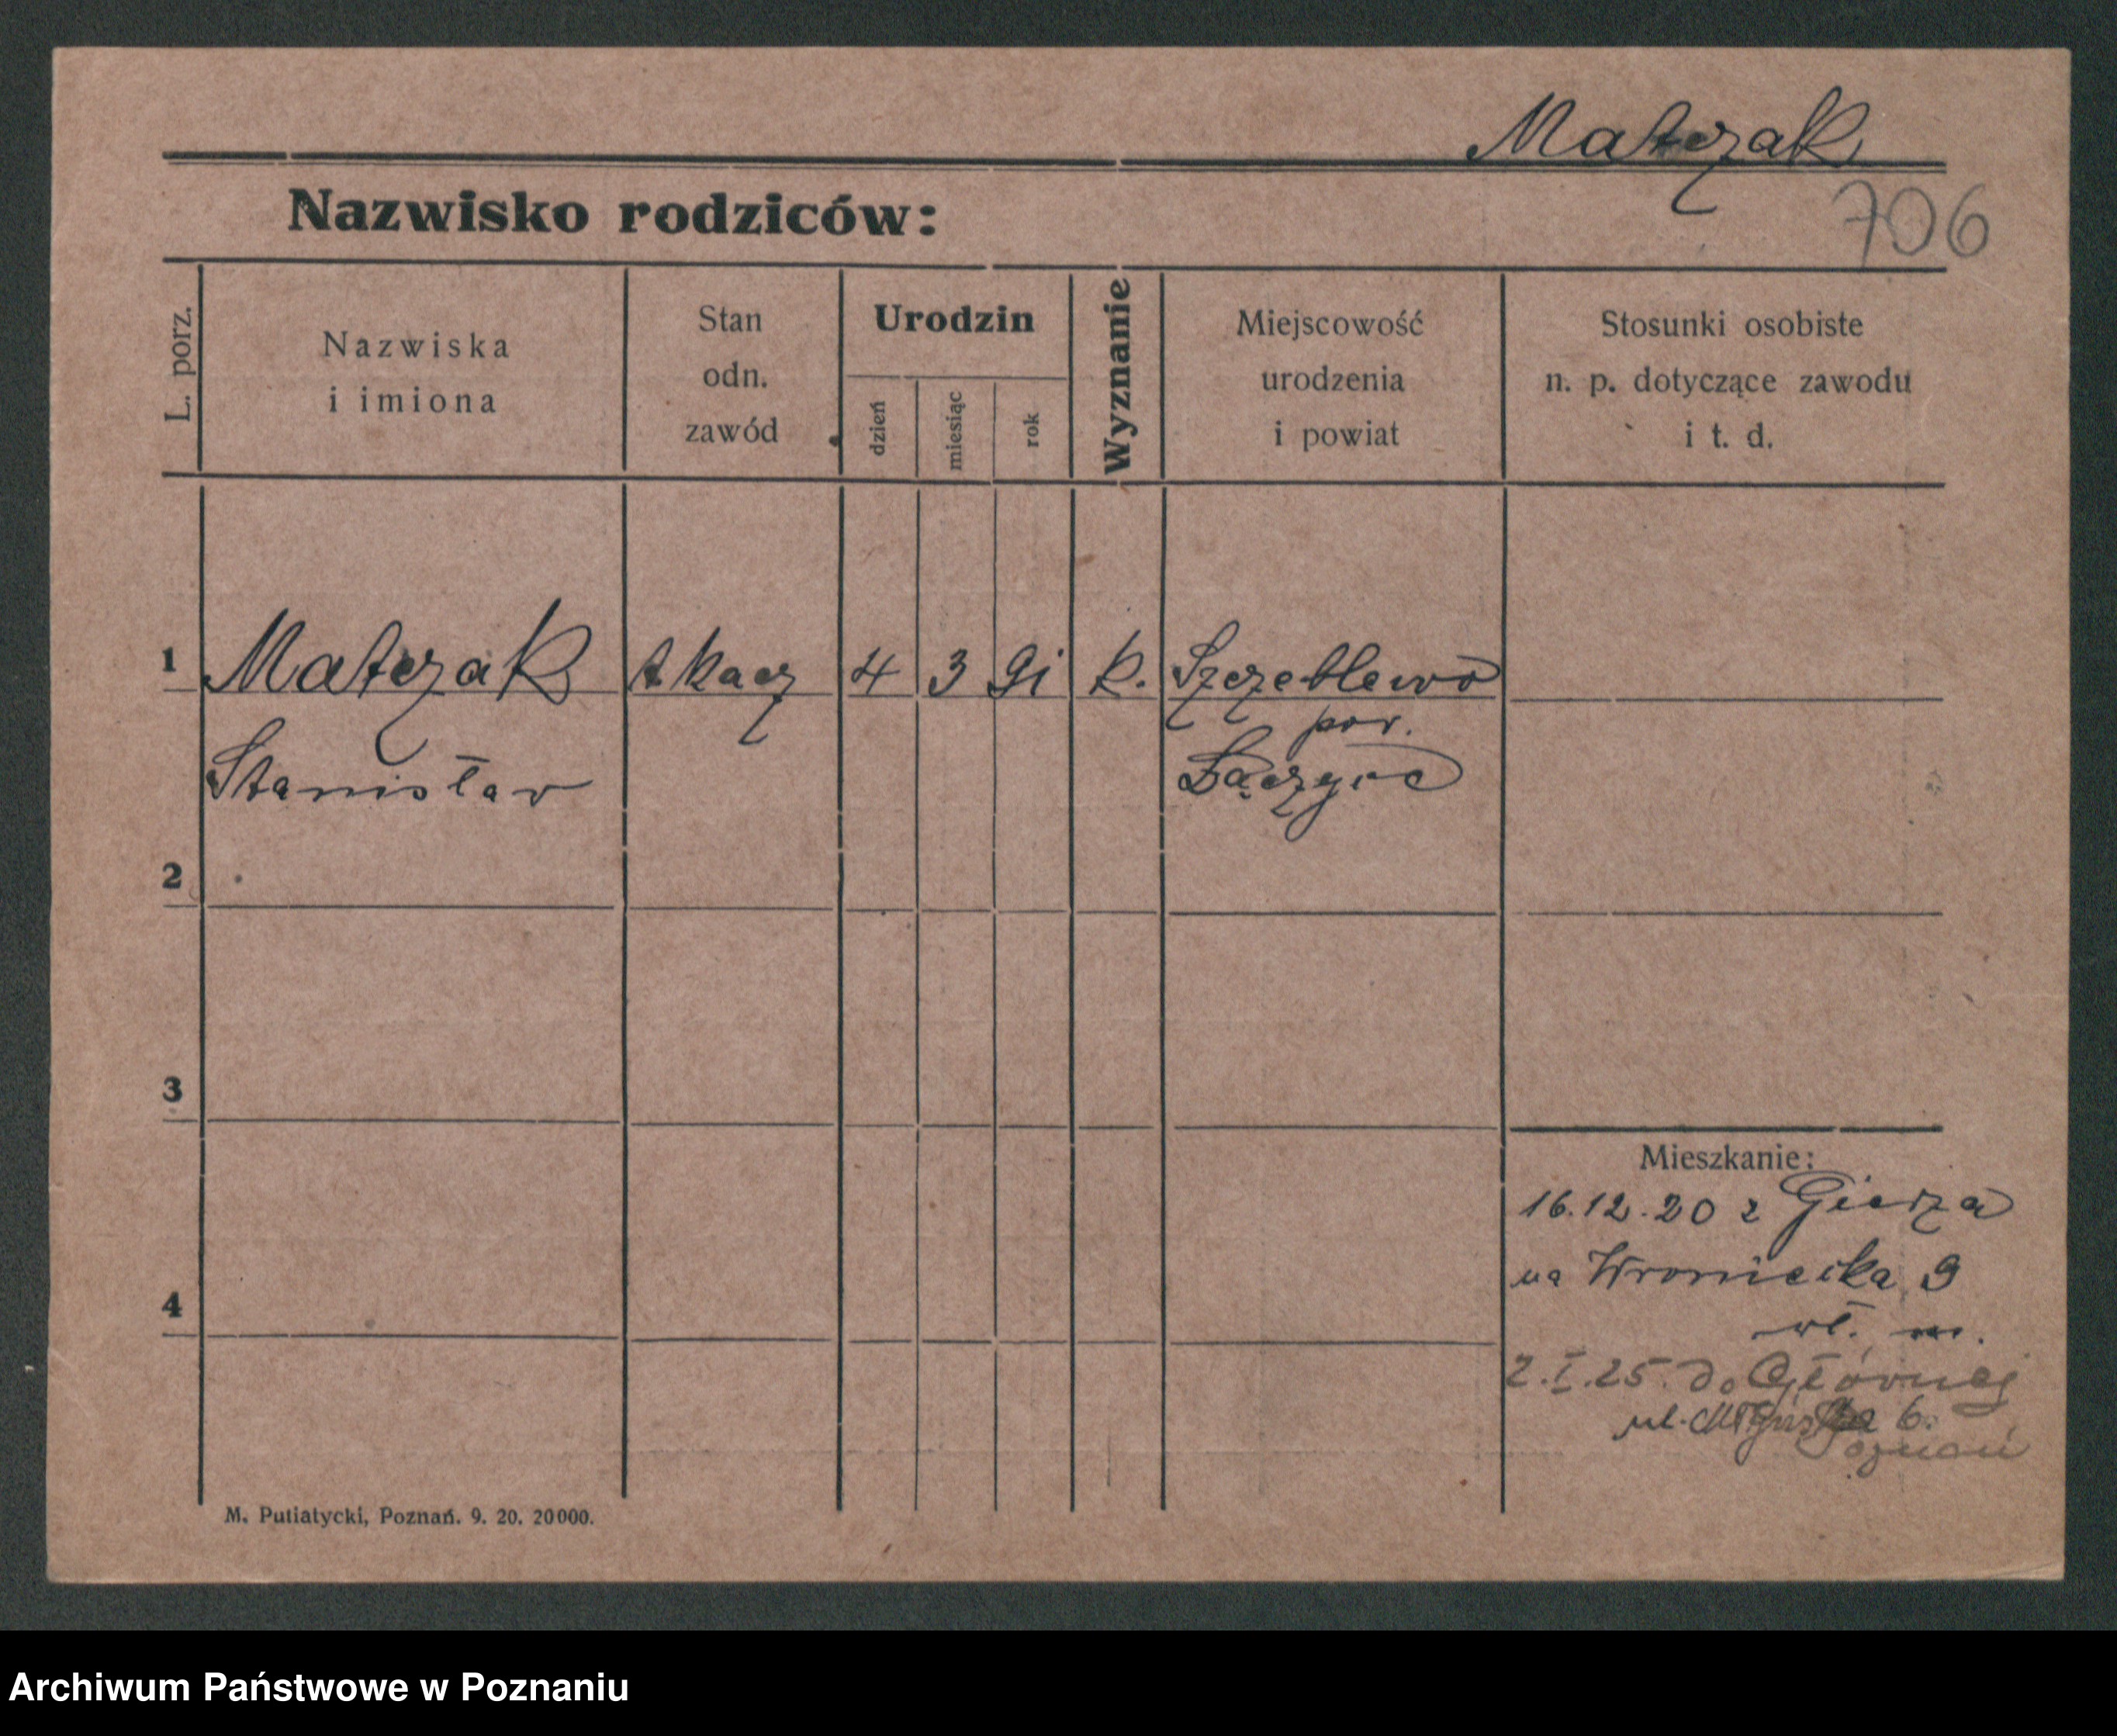 Matczak
Nazwisko rodziców:
706
L. porz.
Nazwiska
i imiona
Stan
odn.
zawód
Urodzin
dzień
miesiąc
rok
Wyznanie
Miejscowość
urodzenia
i powiat
Stosunki osobiste
n. p. dotyczące zawodu
i t. d.
1 Matczak tkacz 4 3 91 k. Szczeblewo
pow.
Stanisław Łączyc
2
3
Mieszkanie:
16.12.20 z
na Wroniecka 9
wł. m.
4
2.I.25. do Głównej
ul. 6.
Poznań
M. Putiatycki, Poznań. 9. 20. 20000.
Archiwum Państwowe w Poznaniu